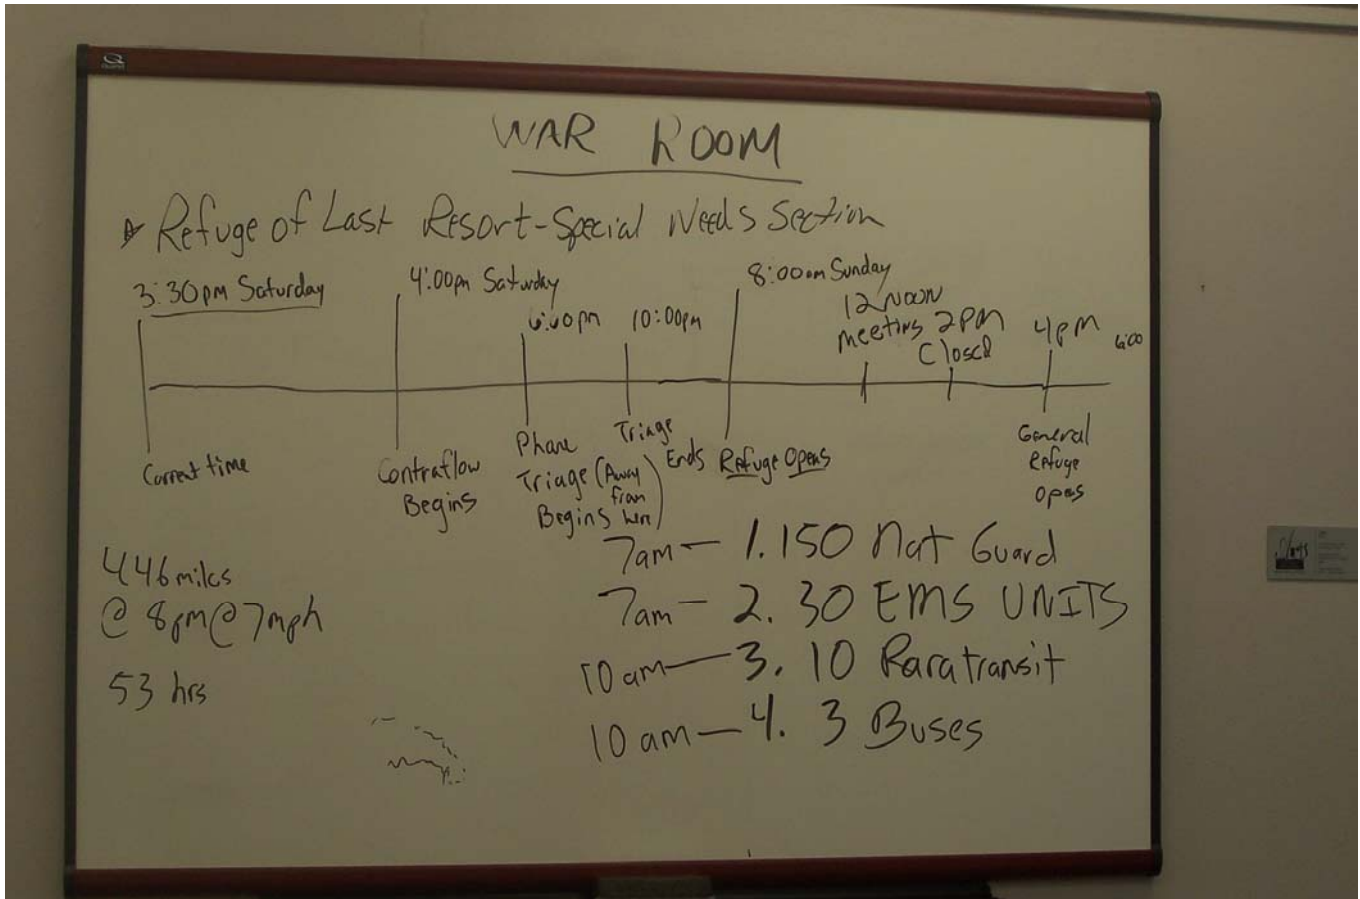 WAR ROOM
Refuge of Last Resort-Special Needs Section
3:30pm Saturday
4:00pm Saturday
6:00pm
10:00pm
8:00am Sunday
12 NOON
meeting
2pm
Closed
4pm
6:00
Current time
Contraflow
Begins
Phone
Triage (Away
from
Begins here)
Triage
Ends
Refuge Opens
General
Refuge
Opens
446 miles
@ 8pm@7mph
53 hrs
7am - 1. 150 Nat Guard
7am - 2. 30 EMS UNITS
10am - 3. 10 Paratransit
10am - 4. 3 Buses